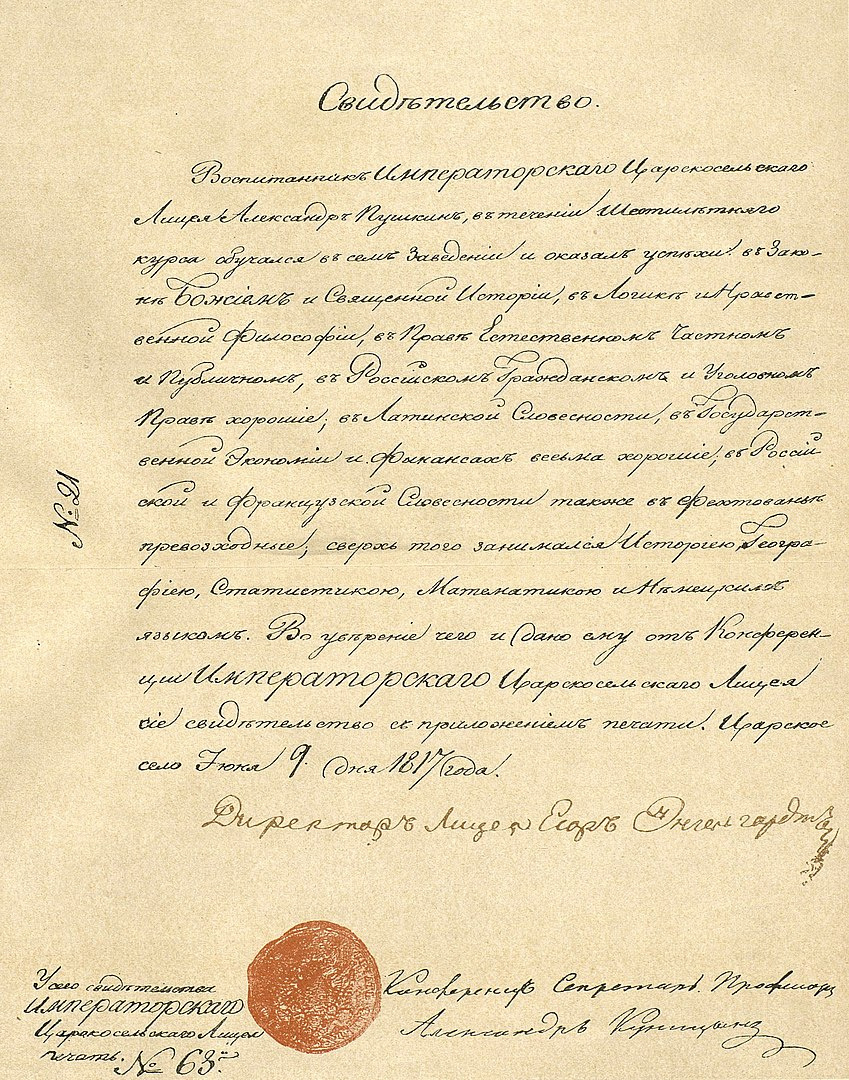 Свидѣтельство.
Воспитанникъ Императорскаго Царскосельскаго
Лицея Александръ Пушкинъ, въ теченіи Шестилѣтняго
курса обучался въ семъ Заведеніи и оказалъ успѣхи: въ Зако-
нѣ Божіемъ и Священной Исторіи, въ Логикѣ и Нравст-
венной Философіи, въ Правѣ Естественномъ Частномъ
и Публичномъ, въ Россійскомъ Гражданскомъ и Уголовномъ
Правѣ хорошіе; въ Латинской Словесности, въ Государст-
венной Экономіи и Финансахъ весьма хорошіе; въ Россій
ской и Французской Словесности также въ Фехтованьи
превозходные; сверхъ того занимался Исторіею, Геогра-
фіею, Статистикою, Математикою и Нѣмецкимъ
языкомъ. Во увѣреніе чего и дано ему отъ Конферен-
ціи Императорскаго Царскосельскаго Лицея
сіе свидѣтельство съ приложеніемъ печати. Царское
село Іюня 9 дня 1817 года.
№ 21
Директоръ Лицея Егоръ Энгельгардтъ
У сего свидѣтельства
Императорскаго
Царскосельскаго Лицея
печать.
№ 63.
Конференцъ Секретарь Профессоръ
Александръ Куницынъ